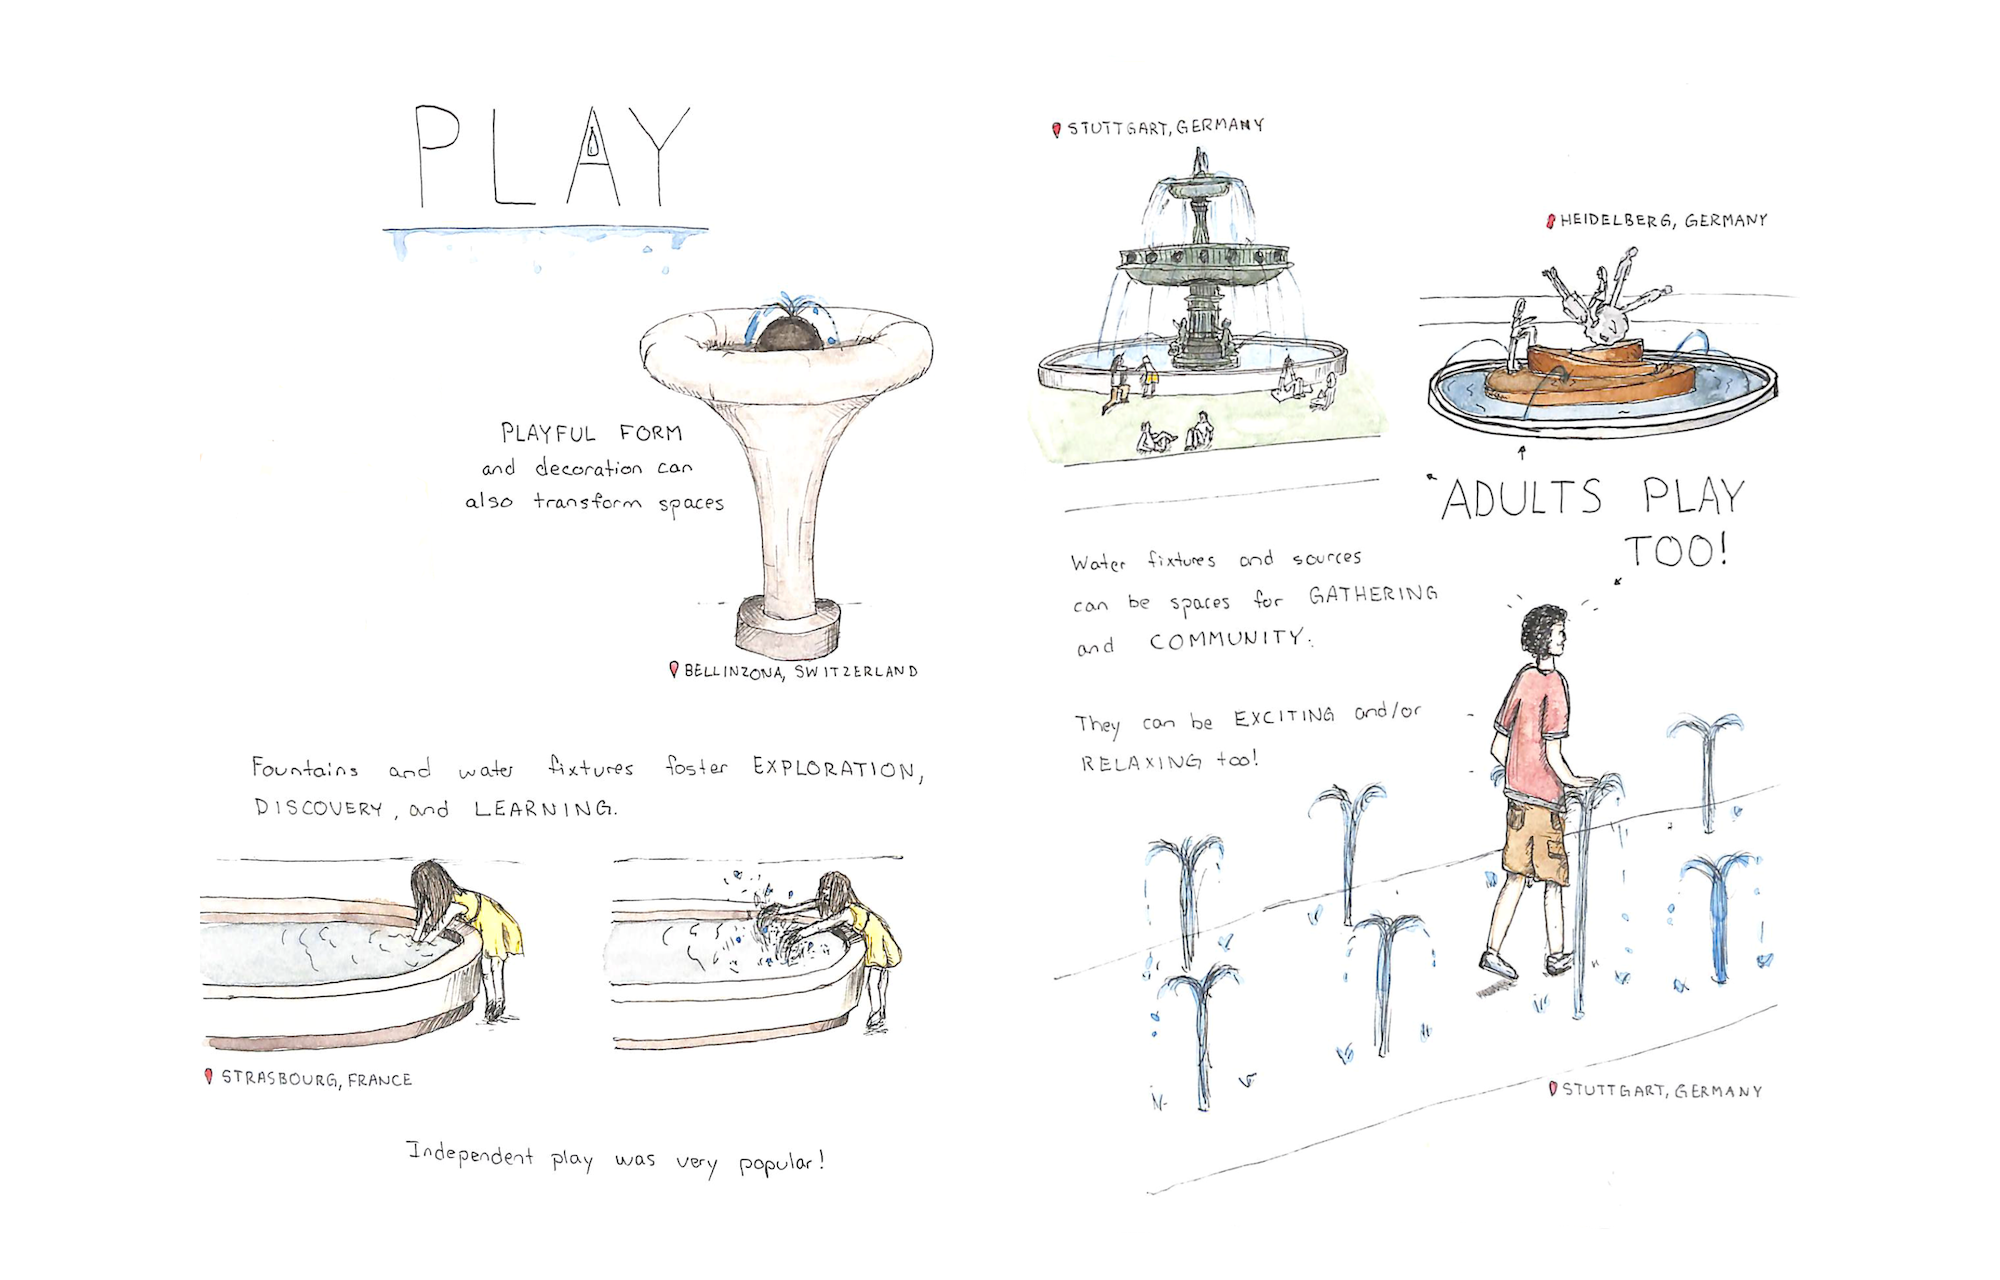 PLAY
PLAYFUL FORM
and decoration can
also transform spaces
BELLINZONA, SWITZERLAND
Fountains and water fixtures foster EXPLORATION,
DISCOVERY, and LEARNING.
STRASBOURG, FRANCE
Independent play was very popular!
STUTTGART, GERMANY
HEIDELBERG, GERMANY
ADULTS PLAY
TOO!
Water fixtures and sources
can be spaces for GATHERING
and COMMUNITY.
They can be EXCITING and/or
RELAXING too!
STUTTGART, GERMANY